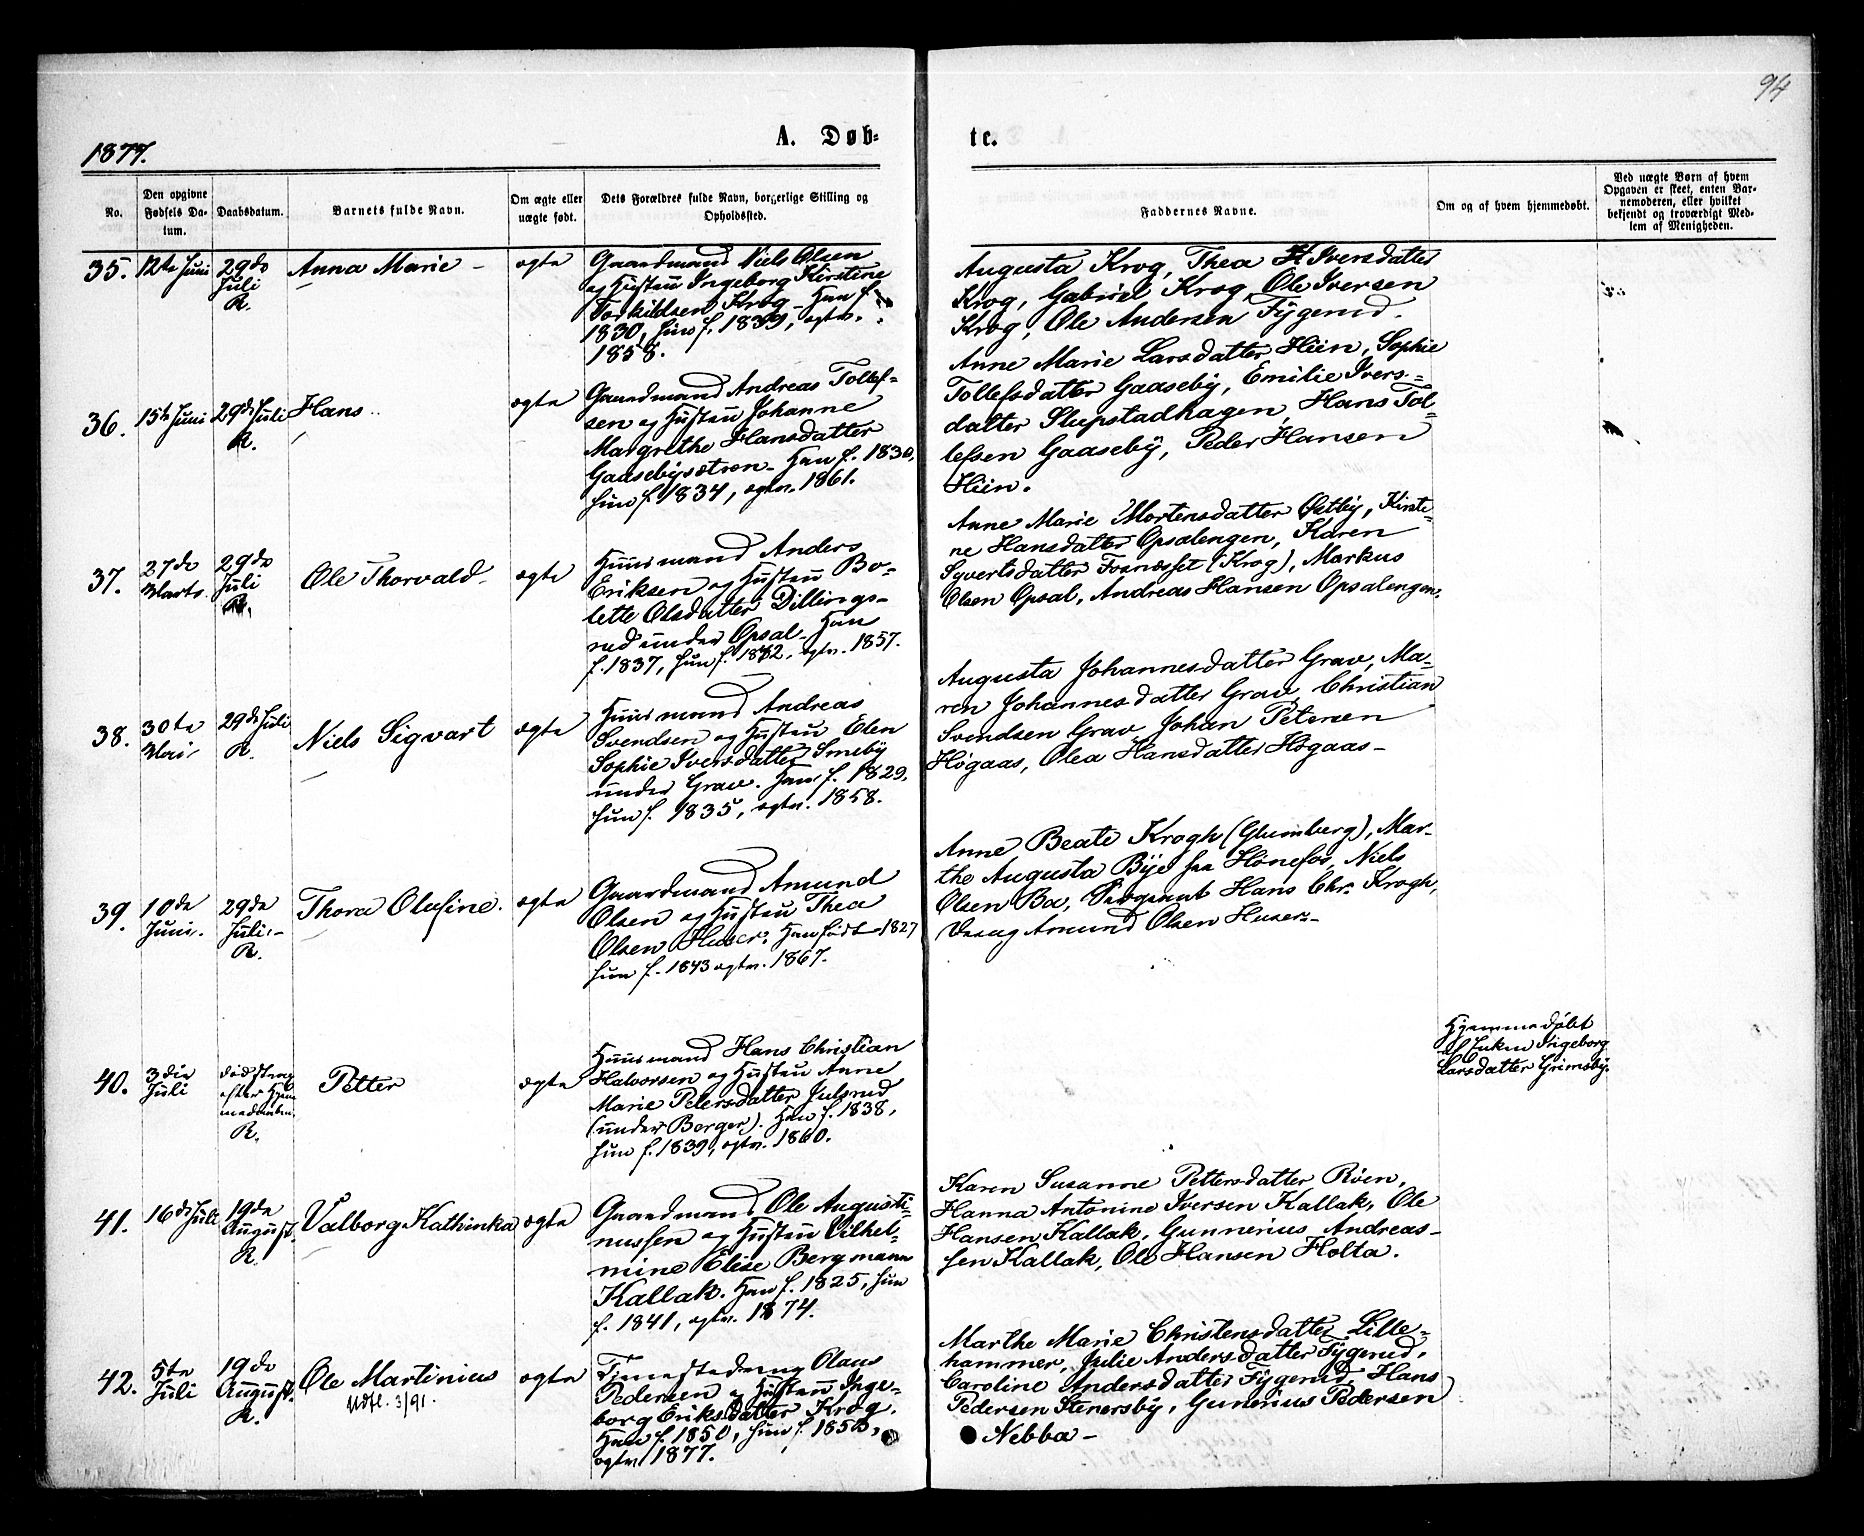 94
1877.
A. Døb-
te.
No.
Den opgivne
Fødsels Da-
tum.
Daabsdatum.
Barnets fulde Navn.
Om ægte eller
uægte født.
Dets Forældres fulde Navn, borgerlige Stilling og
Opholdssted.
Faddernes Navne.
Om og af hvem hjemmedøbt.
Ved uægte Børn af hvem
Opgaven er skeet, enten Bar-
nemoderen, eller hvilket
bekjendt og troværdigt Med-
lem af Menigheden.
35.
12te Juni
29de
Juli
R.
Anna Marie -
ægte
Gaardmand Niels Olsen
og Hustru Ingeborg Kirstine
Torkildsen Krog - Han f.
1830, hun f. 1839, ægtev.
1858.
Augusta Krog, Thea H. Iversdatter
Krog, Gabriel Krog, Ole Iversen
Krog, Ole Andersen Fygerud.
36.
15de Juni
29de Juli
R.
Hans
ægte
Gaardmand Andreas Tollef-
sen og Hustru Johanne
Margrethe Hansdatter
Gaasebysætren - Han f. 1830,
hun f. 1834, ægtev. 1861.
Anne Marie Larsdatter Hiin, Sophie
Tollefsdatter Gaaseby, Emilie Ivers-
datter Slupstadhagen, Hans Tol-
lefsen Gaaseby, Peder Hansen
Hiin.
37.
27de
Marts.
29de
Juli
R.
Ole Thorvald.
ægte
Huusmand Anders
Eriksen og Hustru Bo-
lette Olsdatter Dillings-
rud under Opsal - Han
f. 1837, hun f. 1832, ægtev. 1857.
Anne Marie Mortensdatter Østby, Kirsti-
ne Hansdatter Opsalengen, Karen
Syvertsdatter (Krog), Markus
Olsen Opsal, Andreas Hansen Opsalengen.
38.
30te
Mai
29de Juli
R.
Niels Sigvart
ægte
Huusmand Andreas
Svendsen og Hustru Elen
Sophie Iversdatter Smeby
under Grav. Han f. 1829,
hun f. 1835, ægtev. 1858.
Augusta Johannesdatter Grav, Ma-
ren Johannesdatter Grav, Christian
Svendsen Grav, Johan Petersen
Høgaas, Olea Hansdatter Høgaas -
39.
10de
Juni.
29de
Juli.-
R.
Thora Olufine.
ægte
Gaardmand Amund
Olsen og Hustru Thea
Olsen Huser. Han født 1827
hun f. 1843 ægtev. 1867.
Anne Beate Krogh (Glumberg), Mar-
the Augusta Bye fra Hønefos, Niels
Olsen Ba, Sergeant Hans Chr. Krogh,
Amund Olsen Huser. -
40.
3die
Juli
død strax
efter Hjem-
medaaben.
R.
Petter
ægte
Huusmand Hans Christian
Halvorsen og Hustru Anne
Marie Petersdatter Julsrud
(under Berger). Han f. 1838,
hun f. 1839, ægtev. 1860.
Hjemmedøbt
af Enken Ingeborg
Larsdatter Grimsby.
41.
16de Juli
19de
August.
R.
Valborg Kathinka
ægte
Gaardmand Ole Augusti-
nussen og Hustru Vilhel-
mine Elise Bergmann
Kallak. Han f. 1825, hun
f. 1841, ægtev. 1874.
Karen Susanne Pettersdatter Röen,
Hanna Antonine Iversen Kallak, Ole
Hansen Kallak, Gunnerius Andreas-
sen Kallak, Ole Hansen Holta.
42.
5te
Juli
19de
August.
R.
Ole Martinius
Udfl. 3/91.
ægte
Tjenestedreng Olaus
Pedersen og Hustru Inge-
borg Eriksdatter Krog.
Han f. 1850, hun f. 1850,
ægtev. 1877.
Marthe Marie Christensdatter Lille-
hammer, Julie Andersdatter Fygerud,
Caroline Andersdatter Fygerud, Hans
Pedersen Stenersby, Gunerius Pedersen
Nebba -